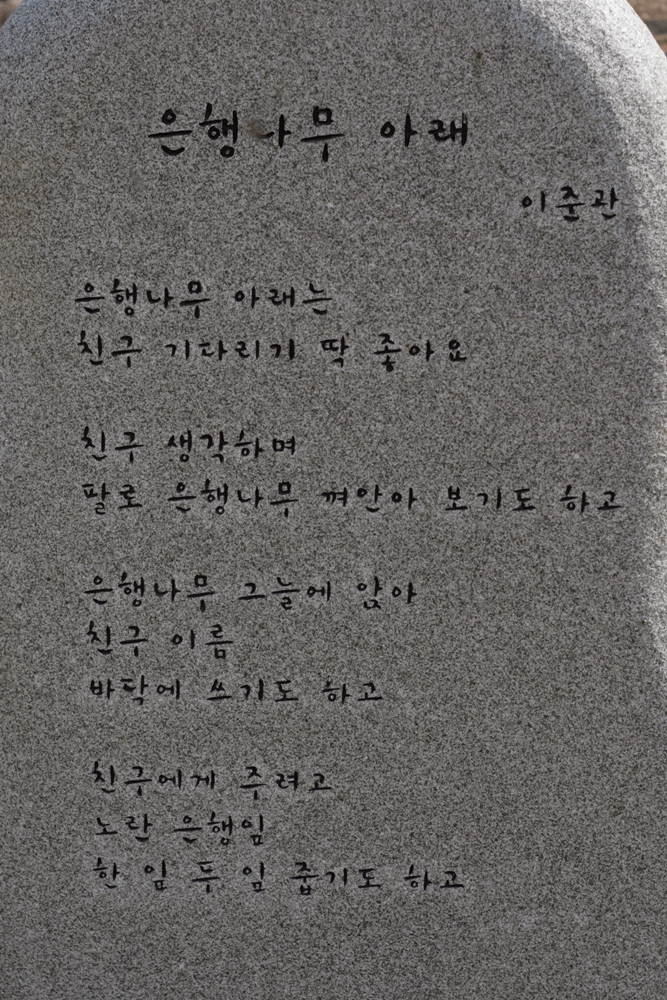 은행나무 아래
이준관
은행나무 아래는
친구 기다리기 딱 좋아요
친구 생각하며
팔로 은행나무 껴안아 보기도 하고
은행나무 그늘에 앉아
친구 이름
바닥에 쓰기도 하고
친구에게 주려고
노란 은행잎
한 잎 두 잎 줍기도 하고